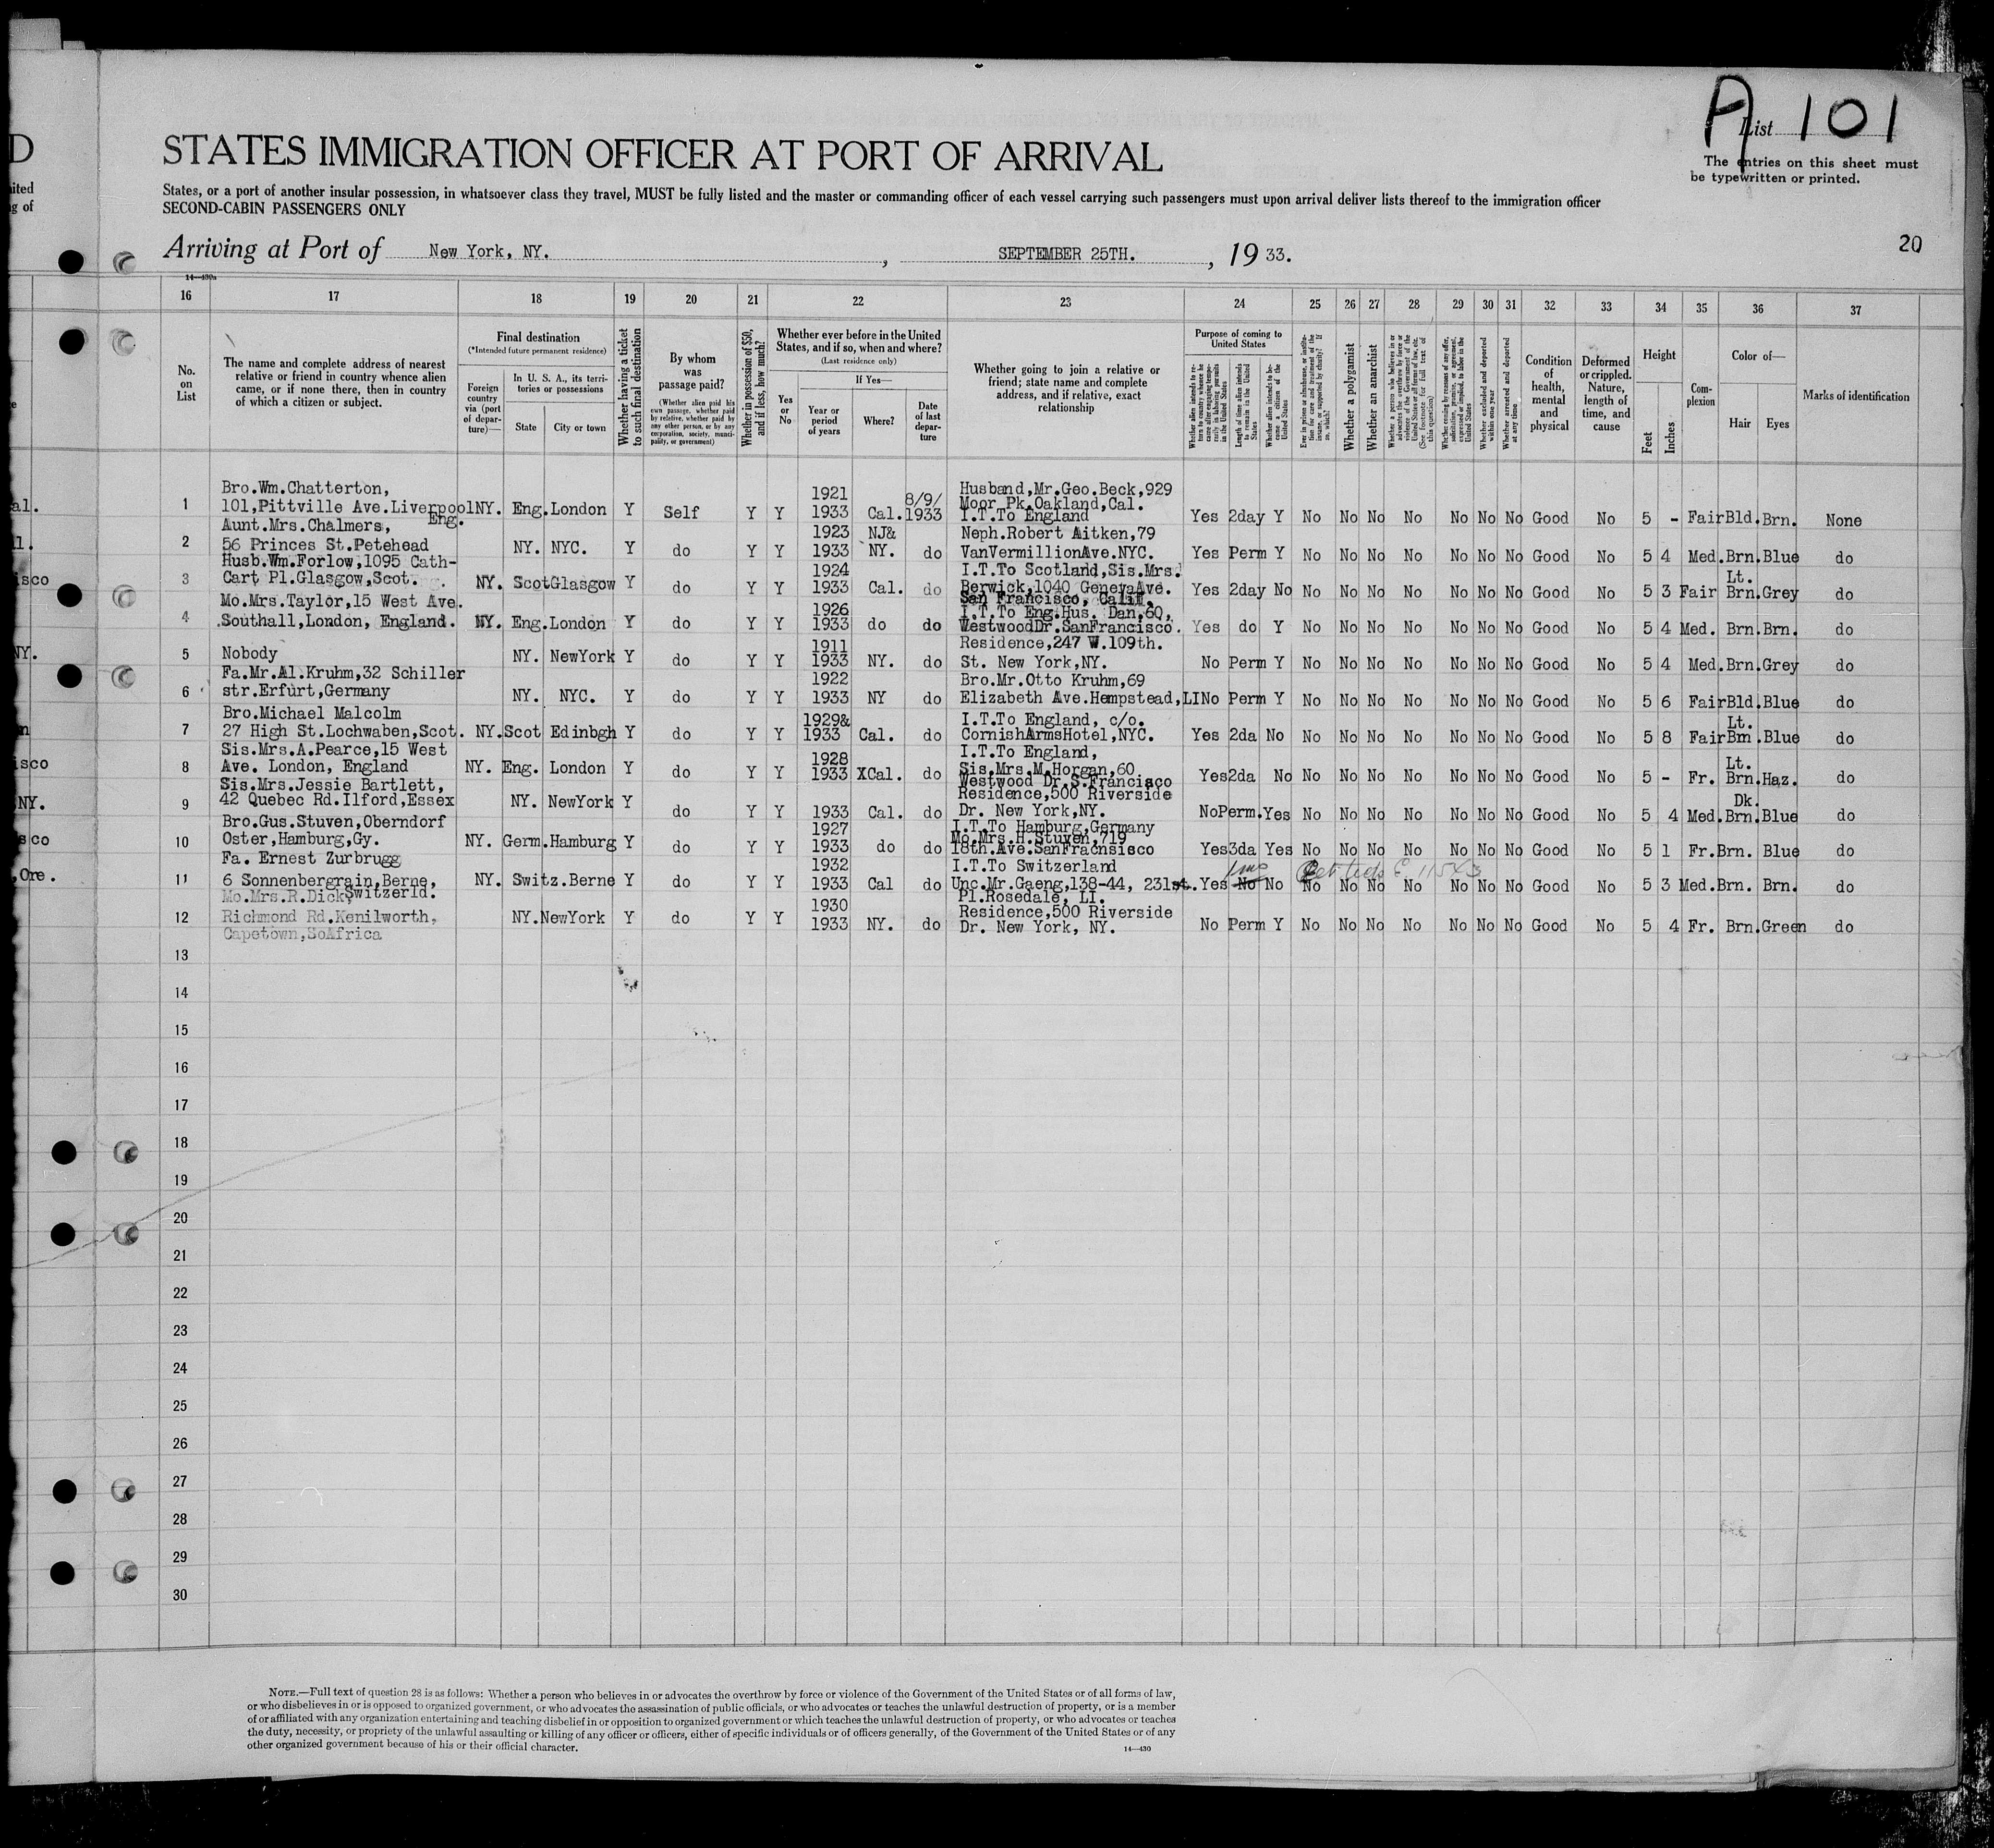 D
A
List 101
STATES IMMIGRATION OFFICER AT PORT OF ARRIVAL
The entries on this sheet must
be typewritten or printed.
ited
g of
States, or a port of another insular possession, in whatsoever class they travel, MUST be fully listed and the master or commanding officer of each vessel carrying such passengers must upon arrival deliver lists thereof to the immigration officer
SECOND-CABIN PASSENGERS ONLY
20
Arriving at Port of New York, NY. , SEPTEMBER 25TH. , 19 33.
14—430a
16 17 18 19 20 21 22 23 24 25 26 27 28 29 30 31 32 33 34 35 36 37
No.
on
List
The name and complete address of nearest
relative or friend in country whence alien
came, or if none there, then in country
of which a citizen or subject.
Final destination
(*Intended future permanent residence)
Foreign
country
via (port
of depar-
ture)—
In U. S. A., its terri-
tories or possessions
State
City or town
Whether having a ticket
to such final destination
By whom
was
passage paid?
(Whether alien paid his
own passage, whether paid
by relative, whether paid by
any other person, or by any
corporation, society, munici-
pality, or government)
Whether in possession of $50,
and if less, how much?
Whether ever before in the United
States, and if so, when and where?
(Last residence only)
Yes
or
No
If Yes—
Year or
period
of years
Where?
Date
of last
depar-
ture
Whether going to join a relative or
friend; state name and complete
address, and if relative, exact
relationship
Purpose of coming to
United States
Whether alien intends to re-
turn to country whence he
came after engaging tempo-
rarily in laboring pursuits
in the United States
Length of time alien intends
to remain in the United
States
Whether alien intends to be-
come a citizen of the
United States
Ever in prison or almshouse, or institu-
tion for care and treatment of the
insane, or supported by charity? If
so, which?
Whether a polygamist
Whether an anarchist
Whether a person who believes in or
advocates the overthrow by force or
violence of the Government of the
United States or all forms of law, etc.
(See footnote for full text of
this question)
Whether coming by reasons of any offer,
solicitation, promise, or agreement,
expressed or implied, to labor in the
United States
Whether excluded and deported
within one year
Whether arrested and deported
at any time
Condition
of
health,
mental
and
physical
Deformed
or crippled.
Nature,
length of
time, and
cause
Height
Feet
Inches
Com-
plexion
Color of—
Hair
Eyes
Marks of identification
al.
1 Bro.Wm.Chatterton,
101,Pittville Ave.Liverpool
Eng.
NY. Eng. London Y Self Y Y 1921
1933 Cal. 8/9/
1933
Husband,Mr.Geo.Beck,929
Moor Pk.Oakland,Cal.
I.T.To England
Yes 2day Y No No No No No No No Good No 5 - Fair Bld. Brn. None
l.
2 Aunt.Mrs.Chalmers,
56 Princes St.Petehead
NY. NYC. Y do Y Y 1923
1933 NJ&
NY. do
Neph.Robert Aitken,79
VanVermillionAve.NYC.
Yes Perm Y No No No No No No No Good No 5 4 Med. Brn. Blue do
isco
3 Husb.Wm.Forlow,1095 Cath-
Cart Pl.Glasgow,Scot.
NY. Scot Glasgow Y do Y Y 1924
1933 Cal. do
I.T.To Scotland,Sis.Mrs.
Berwick,1040 GenevaAve.
San Francisco, Calif.
Yes 2day No No No No No No No No Good No 5 3 Fair Lt.
Brn. Grey do
4 Mo.Mrs.Taylor,15 West Ave.
Southall,London, England.
NY. Eng. London Y do Y Y 1926
1933 do do
I.T.To Eng.Hus. Dan,60,
WestwoodDr.SanFrancisco.
Yes do Y No No No No No No No Good No 5 4 Med. Brn. Brn. do
NY.
5 Nobody
NY. NewYork Y do Y Y 1911
1933 NY. do
Residence,247 W.109th.
St. New York,NY.
No Perm Y No No No No No No No Good No 5 4 Med. Brn. Grey do
6 Fa.Mr.Al.Kruhm,32 Schiller
str.Erfurt,Germany
NY. NYC. Y do Y Y 1922
1933 NY do
Bro.Mr.Otto Kruhm,69
Elizabeth Ave.Hempstead,LI
No Perm Y No No No No No No No Good No 5 6 Fair Bld. Blue do
n
7 Bro.Michael Malcolm
27 High St.Lochwaben,Scot.
NY. Scot Edinbgh Y do Y Y 1929&
1933 Cal. do
I.T.To England, c/o.
CornishArmsHotel,NYC.
Yes 2da No No No No No No No No Good No 5 8 Fair Lt.
Bm. Blue do
isco
8 Sis.Mrs.A.Pearce,15 West
Ave. London, England
NY. Eng. London Y do Y Y 1928
1933 XCal. do
I.T.To England,
Sis.Mrs.M.Horgan,60
Westwood Dr.S.Francisco
Yes 2da No No No No No No No No Good No 5 - Fr. Lt.
Brn. Haz. do
NY.
9 Sis.Mrs.Jessie Bartlett,
42 Quebec Rd.Ilford,Essex
NY. NewYork Y do Y Y 1933 Cal. do
Residence,500 Riverside
Dr. New York,NY.
No Perm. Yes No No No No No No No Good No 5 4 Med. Dk.
Brn. Blue do
sco
10 Bro.Gus.Stuven,Oberndorf
Oster,Hamburg,Gy.
NY. Germ. Hamburg Y do Y Y 1927
1933 do do
I.T.To Hamburg,Germany
Mo.Mrs.H.Stuven,719
18th.Ave.SanFracnsisco
Yes 3da Yes No No No No No No No Good No 5 1 Fr. Brn. Blue do
,Ore.
11 Fa. Ernest Zurbrugg
6 Sonnenbergrain,Berne,
Switzerld.
NY. Switz. Berne Y do Y Y 1932
1933 Cal do
I.T.To Switzerland
Unc.Mr.Gaeng,138-44, 231st.
Pl.Rosedale, LI.
Yes No No No No No No No No No Good No 5 3 Med. Brn. Brn. do
12 Mo.Mrs.R.Dick,
Richmond Rd.Kenilworth,
Capetown,SoAfrica
NY. NewYork Y do Y Y 1930
1933 NY. do
Residence,500 Riverside
Dr. New York, NY.
No Perm Y No No No No No No No Good No 5 4 Fr. Brn. Green do
13
14
15
16
17
18
19
20
21
22
23
24
25
26
27
28
29
30
NOTE.—Full text of question 28 is as follows: Whether a person who believes in or advocates the overthrow by force or violence of the Government of the United States or of all forms of law,
or who disbelieves in or is opposed to organized government, or who advocates the assassination of public officials, or who advocates or teaches the unlawful destruction of property, or is a member
of or affiliated with any organization entertaining and teaching disbelief in or opposition to organized government or which teaches the unlawful destruction of property, or who advocates or teaches
the duty, necessity, or propriety of the unlawful assaulting or killing of any officer or officers, either of specific individuals or of officers generally, of the Government of the United States or of any
other organized government because of his or their official character.
14—430